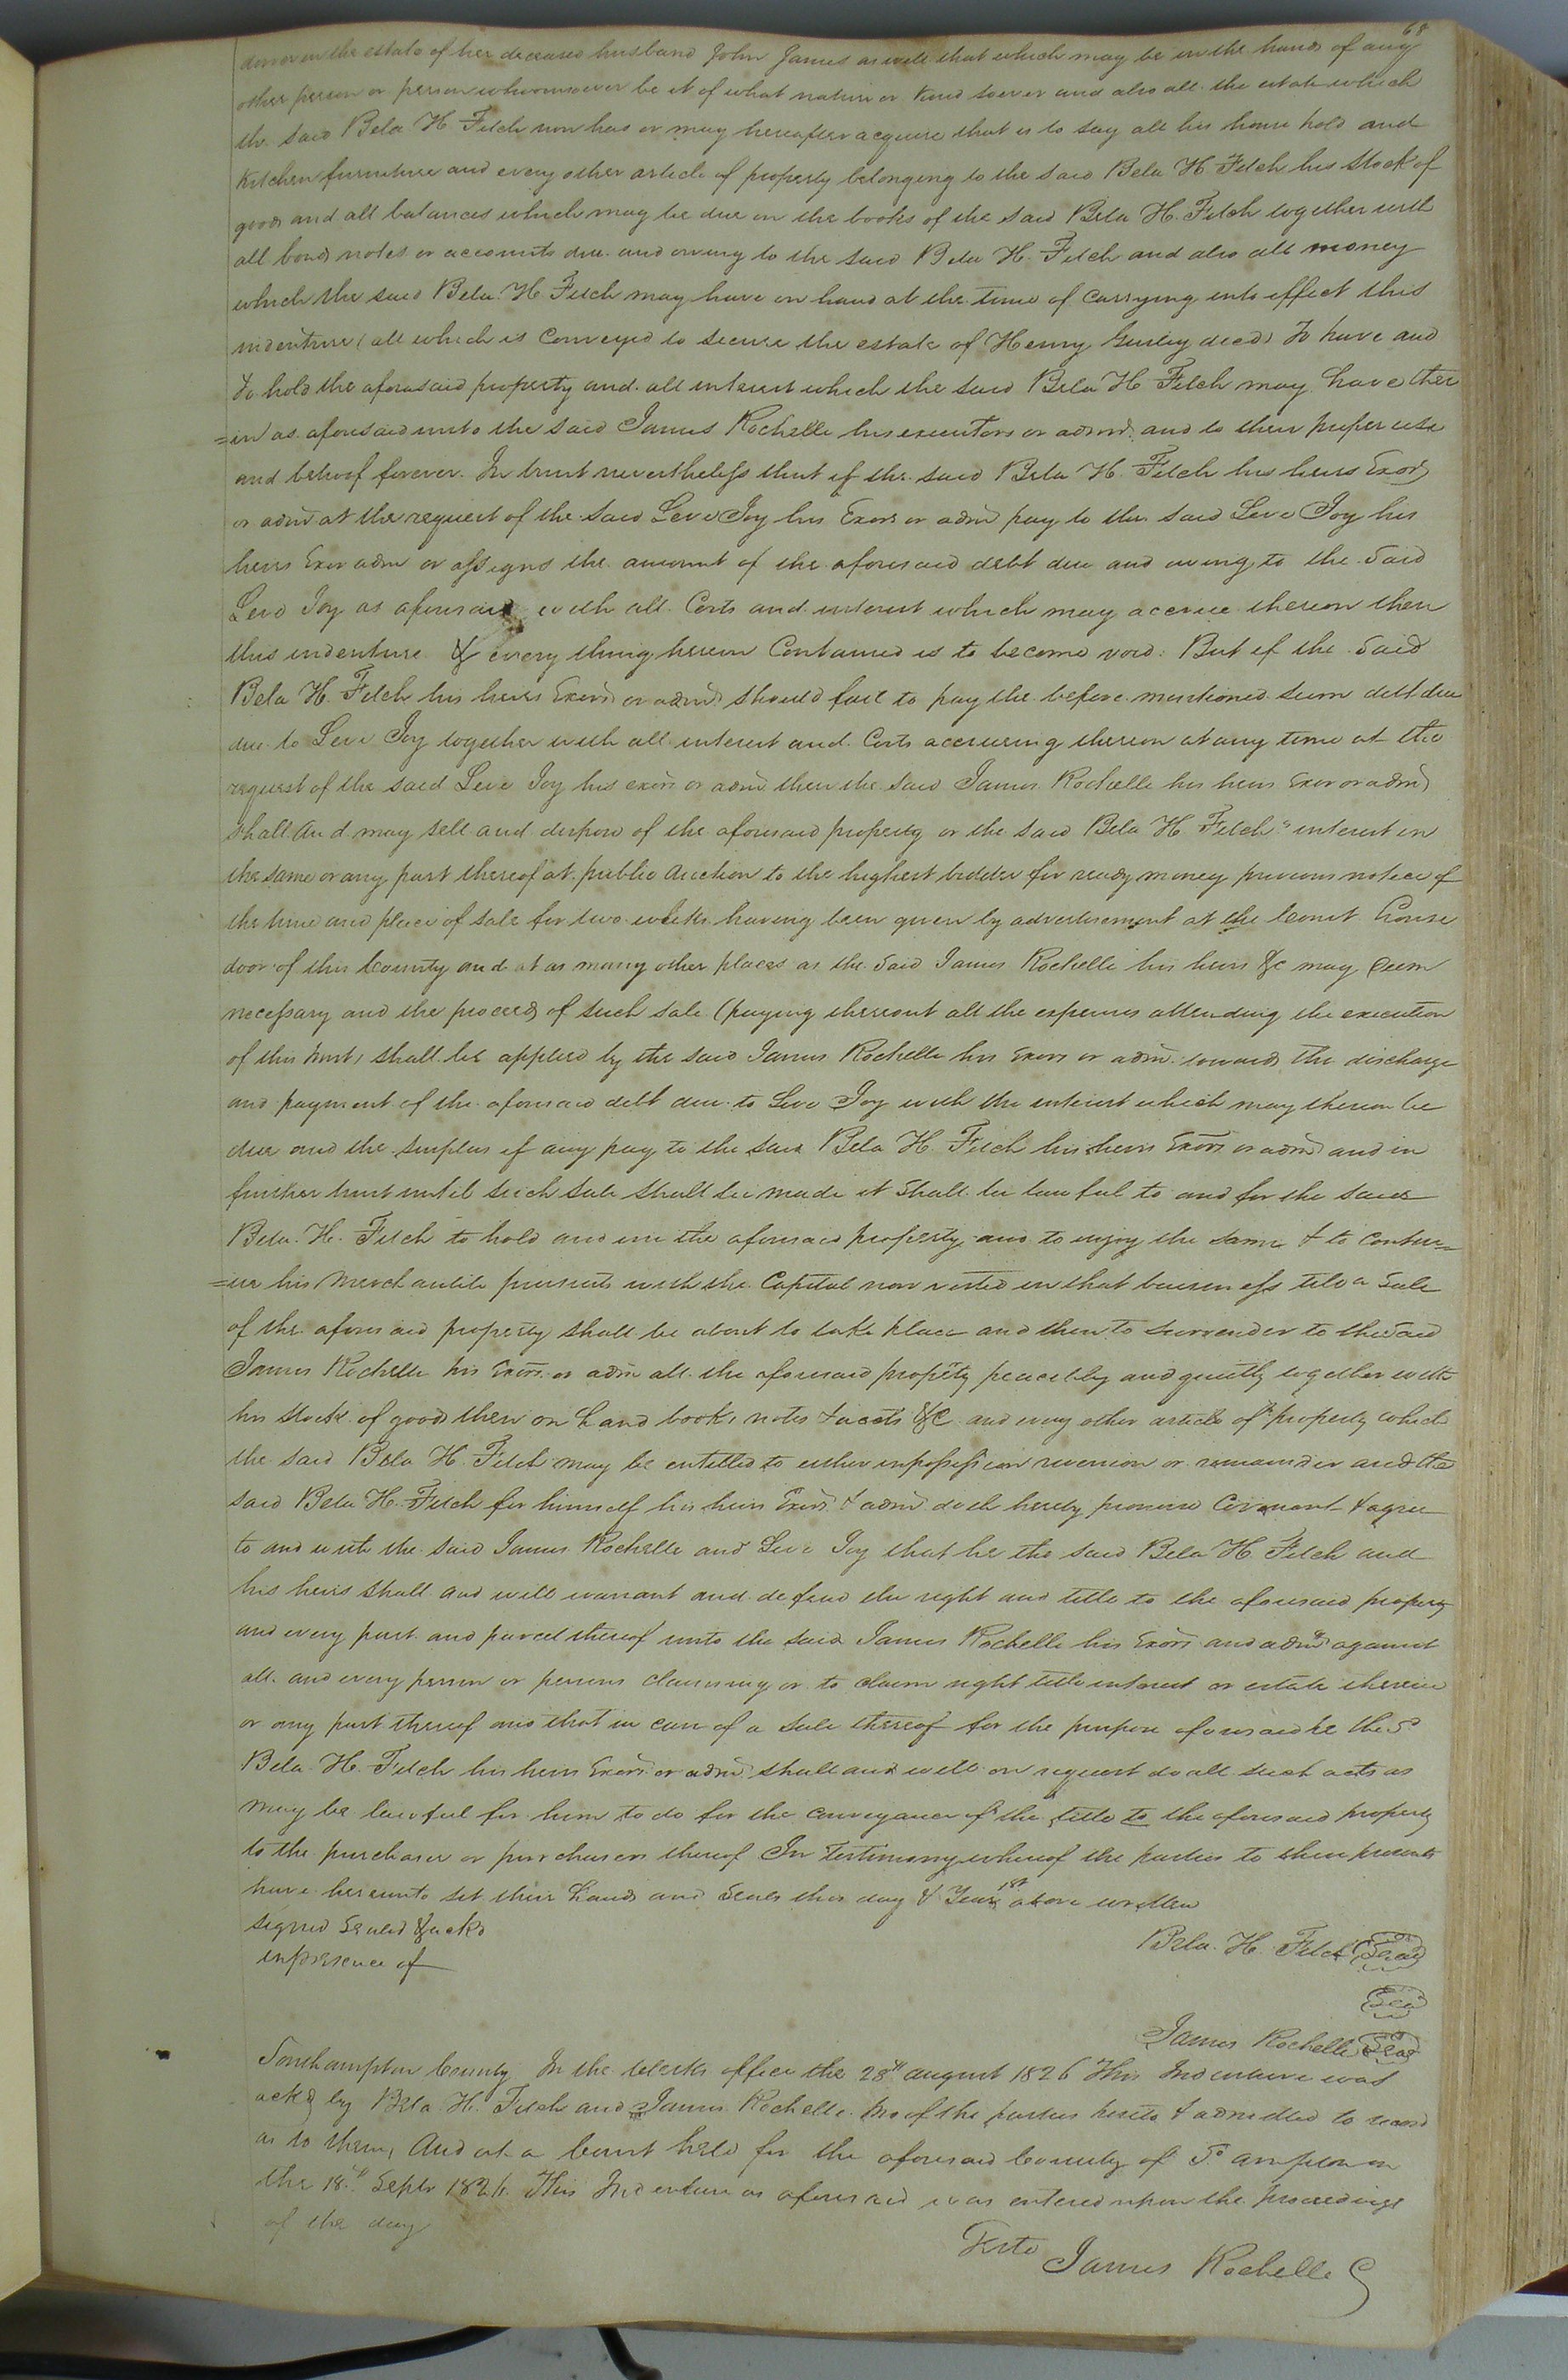 68
dower in the estate of her deceased husband John James as well that which may be in the hands of any
other person or person whomsoever be it of what nature or kind soever and also all the estate which
the said Bela H Fitch now has or may hereafter acquire that is to say all his house hold and
Kitchen furniture and every other article of property belonging to the said Bela H Fitch his Stock of
goods and all balances which may be due on the books of the said Bela H. Fitch together with
all bonds notes or accounts due and owing to the said Bela H. Fitch and also all money
which the said Bela H Fitch may have on hand at the time of carrying into effect this
indenture (all which is conveyed to secure the estate of Henry Gurley decd) To have and
to hold the aforesaid property and all interest which the said Bela H Fitch may have ther
=in as aforesaid unto the said James Rochelle his executors or admrs. and to their proper use
and behoof forever. In trust nevertheless that if the said Bela H. Fitch his heirs Exors
or admrs at the request of the said Levi Joy his Exors or admrs pay to the said Levi Joy his
heirs Exor admr or assigns the amount of the aforesaid debt due and owing to the said
Levi Joy as aforesaid with all Costs and interest which may accrue thereon then
this indenture & every thing herein Contained is to become void: But if the said
Bela H. Fitch his heirs Exors or admrs should fail to pay the before mentioned sum debt due
due to Levi Joy together with all interest and Costs accrueing thereon at any time at the
request of the said Levi Joy his exors or admrs then the said James Rochelle his heirs Exor or admrs
shall and may sell and dispose of the aforesaid property or the said Bela H Fitch's interest in
the same or any part thereof at public auction to the highest bidder for ready money previous notice of
the time and place of sale for two weeks having been given by advertisement at the Court house
door of this County and at as many other places as the said James Rochelle his heirs &c may deem
necessary and the proceeds of such sale (paying thereout all the expenses attending the execution
of this trust) shall be applied by the said James Rochelle his Exors or admrs towards the discharge
and payment of the aforesaid debt due to Levi Joy with the interest which may thereon be
due and the surplus if any pay to the said Bela H Fitch his heirs Exors or admrs and in
further trust until such sale shall be made it shall be lawful to and for the said
Bela. H. Fitch to hold and use the aforesaid property and to enjoy the same & to contin=
=ue his Merchantile pursuits with the Capital now vested in that business till a Sale
of the aforesaid property shall be about to take place and then to surrender to the said
James Rochelle his Exors or admrs all the aforesaid property peaceably and quietly together with
his stock of goods then on hand books, notes & accts &c and every other article of property which
the said Bela H. Fitch may be entitled to either in possession reversion or remainder and the
said Bela H. Fitch for himself his heirs Exors & admrs doth hereby promise Covenant & agree
to and with the said James Rochelle and Levi Joy that he the said Bela H Fitch and
his heirs shall and will warrant and defend the right and title to the aforesaid property
and every part and parcel thereof unto the said James Rochelle his Exors and admrs against
all and every person or persons claiming or to claim right title interest or estate therein
or any part thereof and that in case of a sale thereof for the purpose aforesaid he the sd
Bela H. Fitch his heirs Exors or admrs shall and will on request do all such acts as
may be lawful for him to do for the conveyance of the title to the aforesaid property
to the purchaser or purchasers thereof In Testimony whereof the parties to these presents
have hereunto set their hands and seals this day & Year 1st above written
Signed Sealed & ackd
in presence of
Bela. H. Fitch (Seal)
(Seal)
James Rochelle (Seal)
Southampton County In the Clerks office the 28th august 1826 This Indenture was
ackd by Bela. H. Fitch and James Rochelle two of the parties hereto & admitted to record
as to them, And at a Court held for the aforesaid County of So ampton on
the 18th Septr 1826. This Indenture as aforesaid was entered upon the proceedings
of the day
Teste James Rochelle C